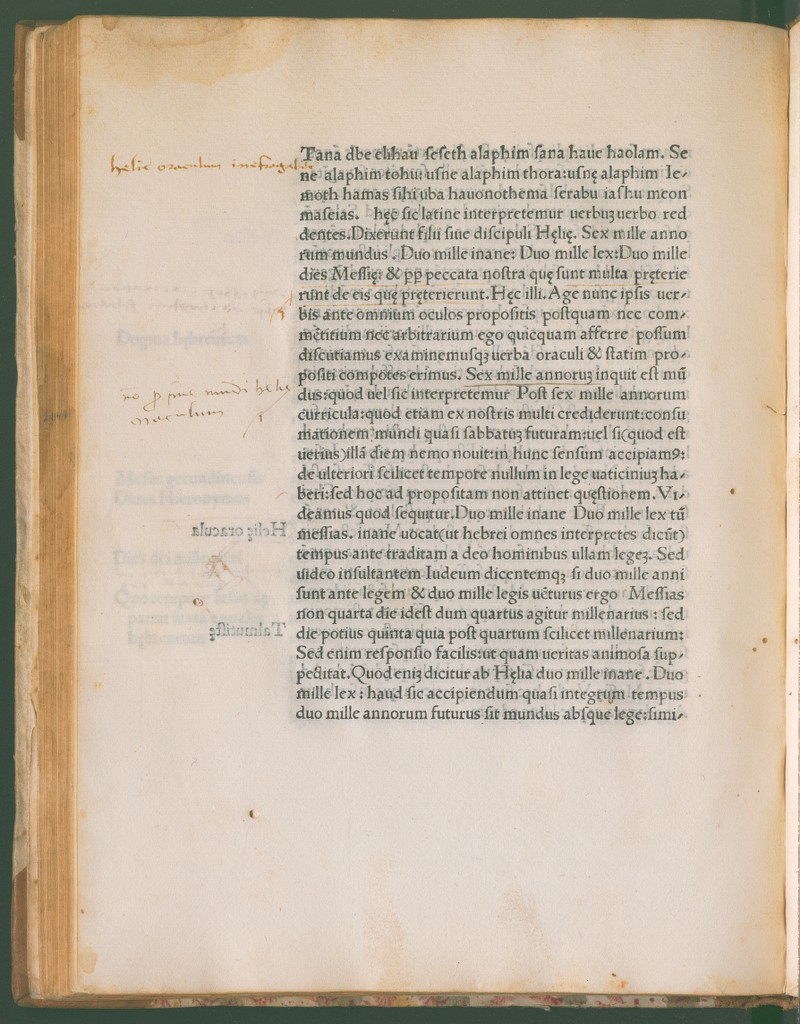 helie oraculum
Tana dbe elihau seseth alaphim sana haue haolam. Se
ne alaphim tohu: usne alaphim thora: usnę alaphim Ie⸗
moth hamas sihi uba hauonothema serabu iashu meon
maseias. hęc sic latine interpretemur uerbuꝫ uerbo red
dentes. Dixerunt filii siue discipuli Hęlię. Sex mille anno
rum mundus. Duo mille inane: Duo mille lex: Duo mille
dies Messię: & ꝓꝑ peccata nostra quę sunt multa pręterie
runt de eis quę pręterierunt. Hęc illi. Age nunc ipsis uer⸗
bis ante omnium oculos propositis postquam nec com⸗
mētitium nec arbitrarium ego quicquam afferre possum
discutiamus examinemusqꝫ uerba oraculi & statim pro⸗
positi compotes erimus. Sex mille annoruꝫ inquit est mū
dus: quod uel sic interpretemur Post sex mille annorum
curricula: quod etiam ex nostris multi crediderunt: consu
mationem mundi quasi sabbatuꝫ futuram: uel si (quod est
uerius) illā diem nemo nouit: in hunc sensum accipiamꝰ:
de ulteriori scilicet tempore nullum in lege uaticiniuꝫ ha⸗
beri: sed hoc ad propositam non attinet quęstionem. Vi⸗
deamus quod sequitur. Duo mille inane Duo mille lex tū
messias. inane uocat (ut hebrei omnes interpretes dicūt)
tempus ante traditam a deo hominibus ullam legeꝫ. Sed
uideo insultantem Iudeum dicentemqꝫ si duo mille anni
sunt ante legem & duo mille legis uēturus ergo Messias
non quarta die idest dum quartus agitur millenarius: sed
die potius quinta quia post quartum scilicet millenarium:
Sed enim responsio facilis: ut quam ueritas animosa sup⸗
peditat. Quod eniꝫ dicitur ab Hęlia duo mille inane. Duo
mille lex: haud sic accipiendum quasi integrum tempus
duo mille annorum futurus sit mundus absque lege: simi⸗
mundi
oraculum
Helię oracula
Talmutistę